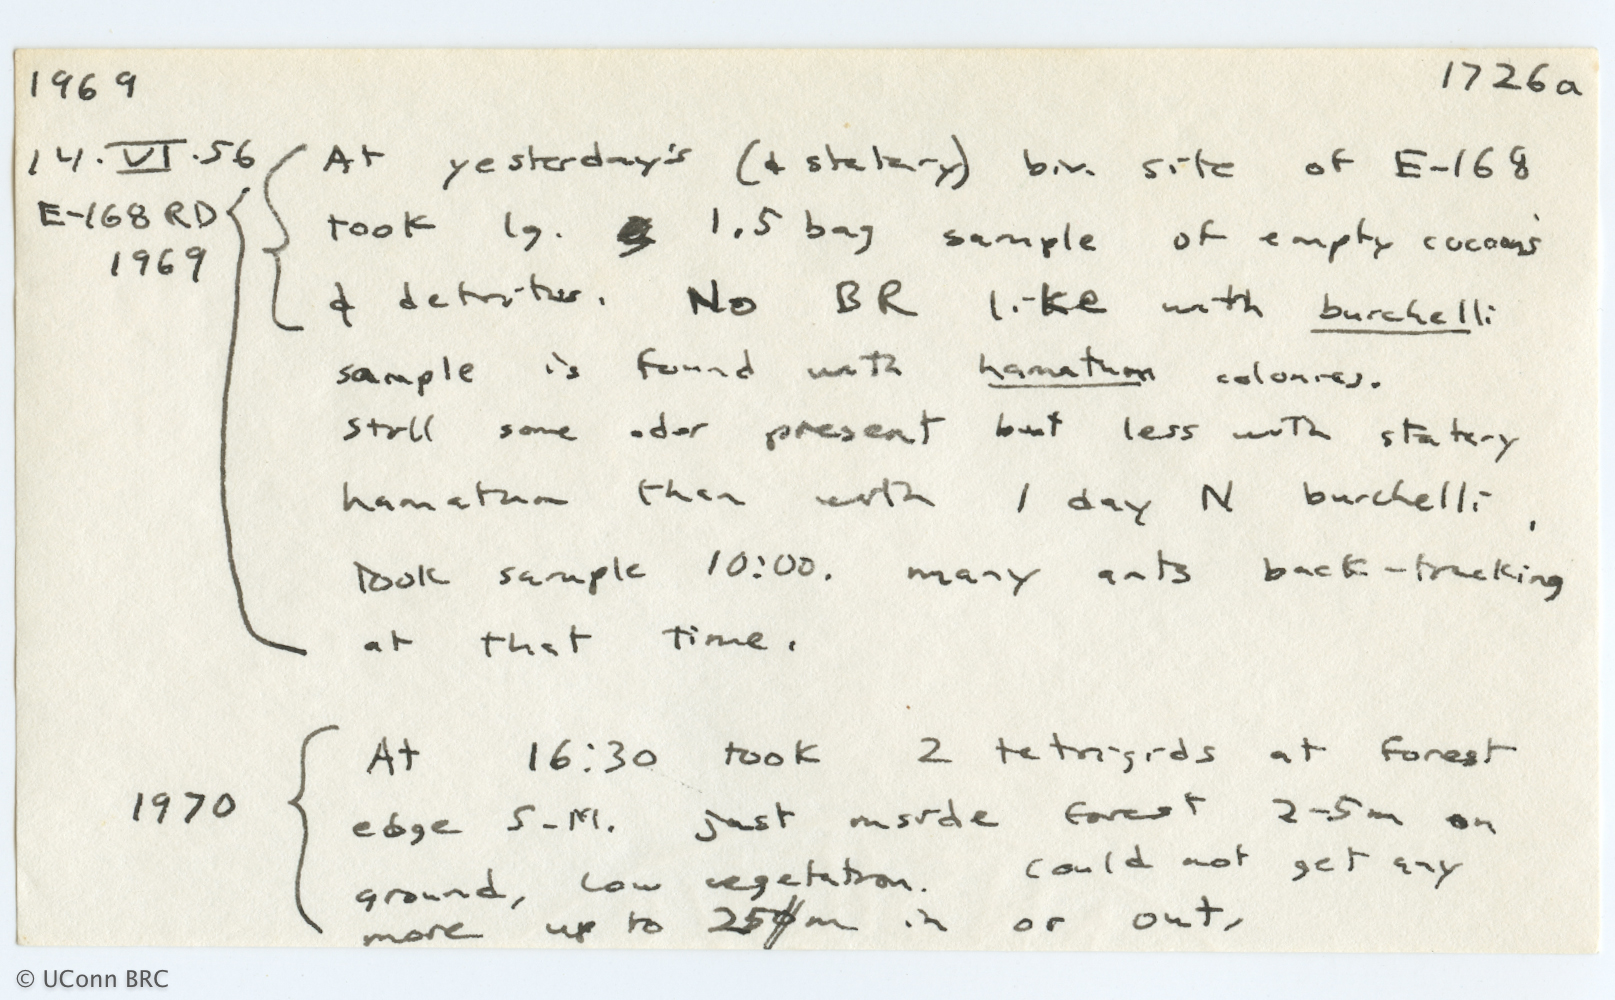 1969 1726a
14.VI.56 At yesterday's (& statary) biv. site of E-168
E-168 RD took lg. 1.5 bag sample of empty cocoons
1969 & detritus. No BR like with burchelli
sample is found with hamatum colonies.
Still some odor present but less with statary
hamatum than with 1 day N burchelli.
Took sample 10:00. many ants back-tracking
at that time.
At 16:30 took 2 tetrigids at forest
1970 edge S-M. just inside forest 2-5m on
ground, low vegetation. Could not get any
more up to 25m in or out.
© UConn BRC